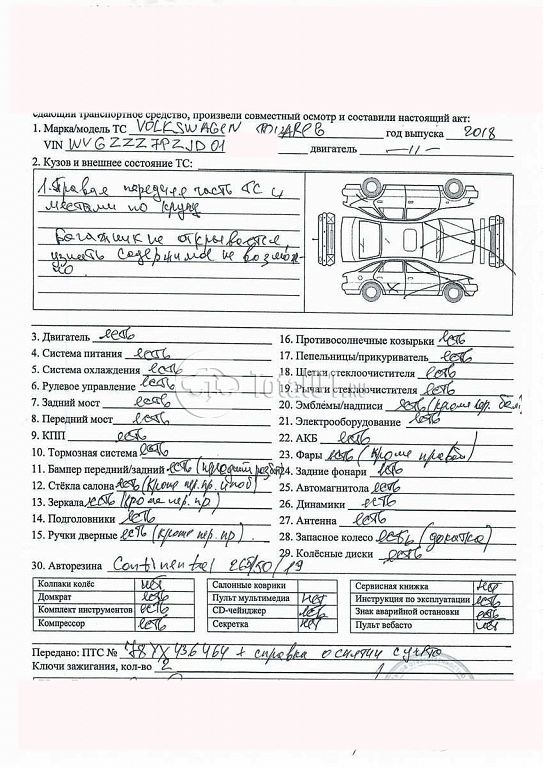 сдающий транспортное средство, произвели совместный осмотр и составили настоящий акт:
1. Марка/модель ТС VOLKSWAGEN год выпуска 2018
VIN WVGZZZ7PZJD01 двигатель —11—
2. Кузов и внешнее состояние ТС:
1. Правая передняя часть ТС и
местами по кругу
Багажник не открывается,
узнать содержимое не возмож-
но.
3. Двигатель есть
4. Система питания есть
5. Система охлаждения есть
6. Рулевое управление есть
7. Задний мост есть
8. Передний мост есть
9. КПП есть
10. Тормозная система есть
11. Бампер передний/задний есть
12. Стёкла салона есть (кроме пер. пр.
13. Зеркала есть (кроме пер. пр)
14. Подголовники есть
15. Ручки дверные есть (кроме пер. пр)
16. Противосолнечные козырьки есть
17. Пепельницы/прикуриватель есть
18. Щетки стеклоочистителя есть
19. Рычаги стеклоочистителя есть
20. Эмблемы/надписи есть (кроме
21. Электрооборудование есть
22. АКБ есть
23. Фары есть (кроме правой)
24. Задние фонари есть
25. Автомагнитола есть
26. Динамики есть
27. Антенна есть
28. Запасное колесо есть (докатка)
29. Колёсные диски есть
30. Авторезина Continental 265/50/19
Колпаки колёс нет
Домкрат есть
Комплект инструментов есть
Компрессор есть
Салонные коврики
Пульт мультимедиа нет
CD-чейнджер есть
Секретка нет
Сервисная книжка нет
Инструкция по эксплуатации есть
Знак аварийной остановки есть
Пульт вебасто нет
Передано: ПТС № 78УХ436464 + справка о снятии с учёта
Ключи зажигания, кол-во 2